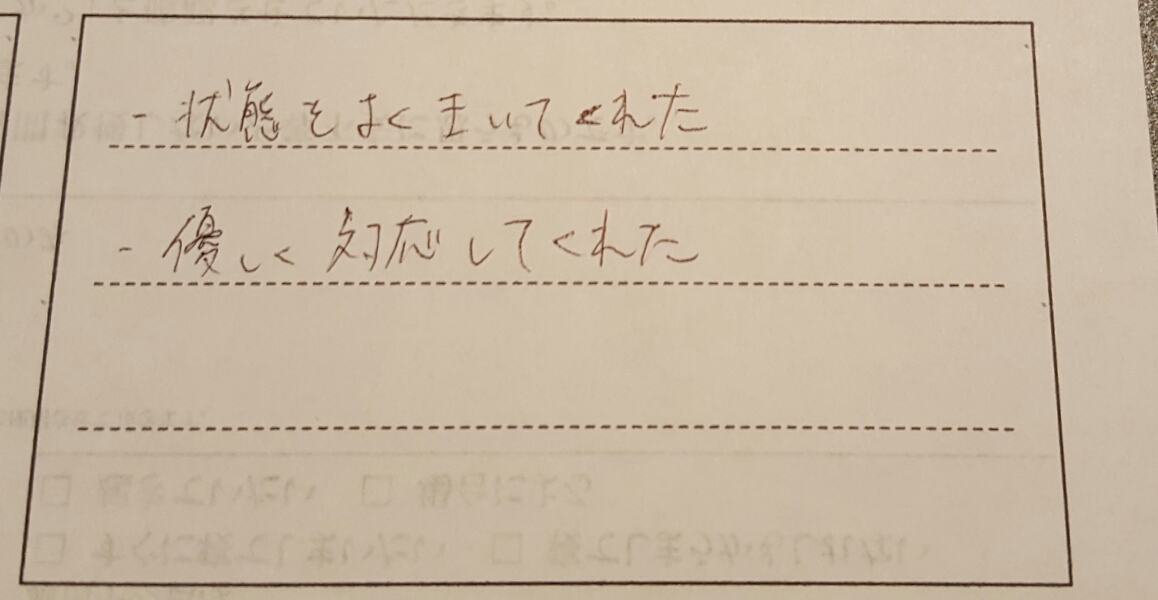 - 状態をよくきいてくれた
- 優しく対応してくれた